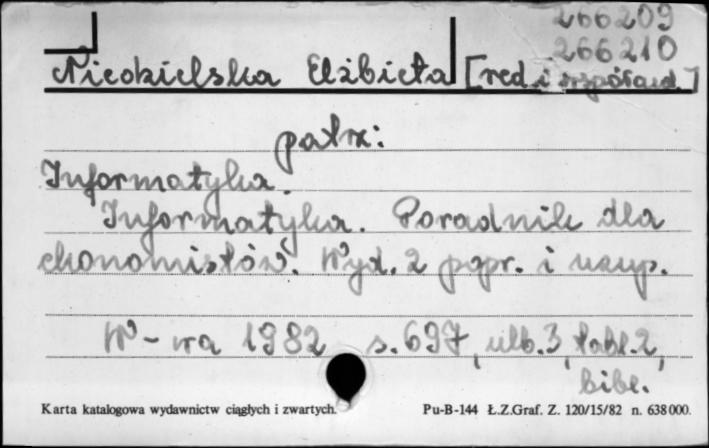 266209
266210
Niedzielska Elżbieta [red. i współaut.]
patrz:
Informatyka.
Informatyka. Poradnik dla
ekonomistów. Wyd. 2 popr. i uzup.
W-wa 1982 s. 697, ulb. 3, tabl. 2,
bibl.
Karta katalogowa wydawnictw ciągłych i zwartych. Pu-B-144 Ł.Z.Graf. Z. 120/15/82 n. 638000.